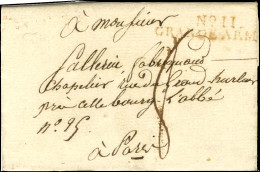 à monsieur
N° 11
GRANDE ARM
fabriquant
chapelier rue du Grand hurleur
près celle bourg l'abbé
n° 95
à Paris